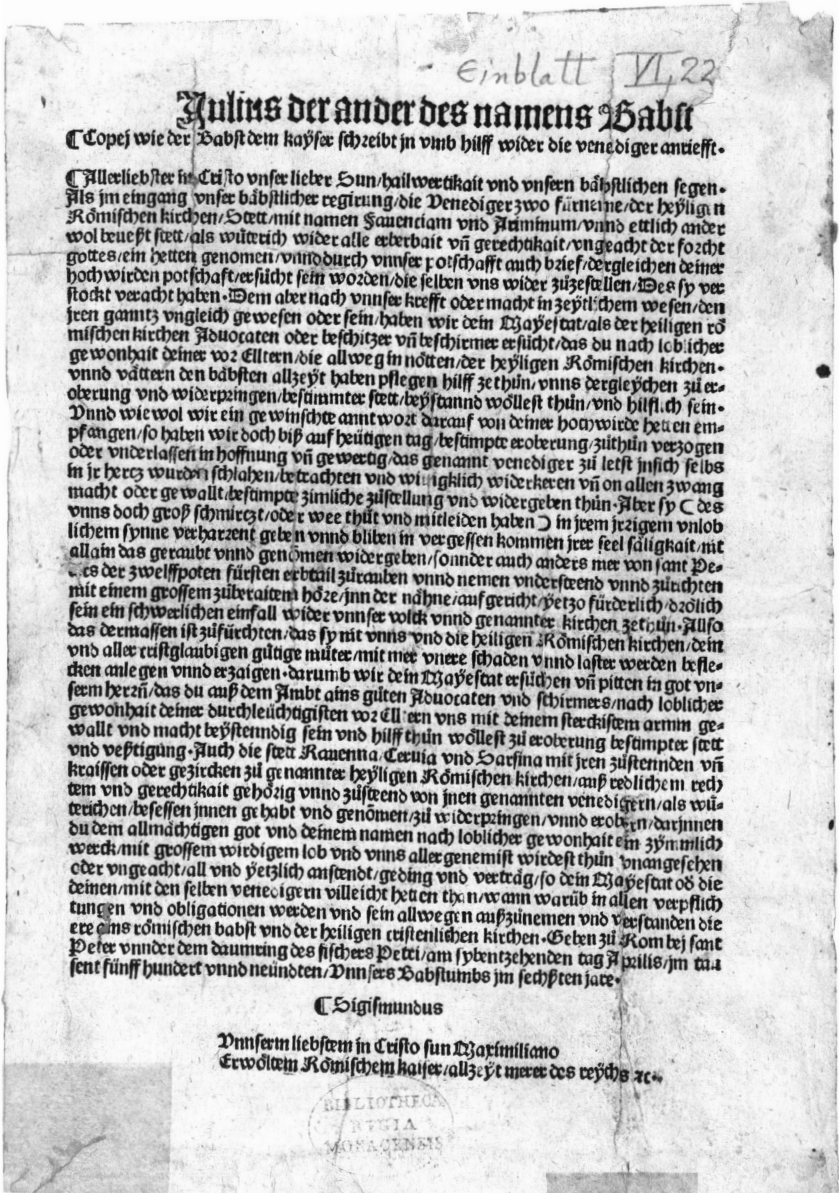 Einblatt VI, 22
Julius der ander des namens Babst
¶ Copej wie der Babst dem kayser schreibt jn vmb hilff wider die venediger anriefft.
¶ Allerliebster in Cristo vnser lieber Sun/hailwertikait vnd vnsern bäbstlichen segen.
Als jm eingang vnser bäbstlicher regirung/die Venediger zwo fürneme/der heyligen
Römischen kirchen/Stett/mit namen Fauenciam vnd Ariminum/vnnd ettlich ander
wol beueßt stett/als wüterich wider alle erberbait vn̄ gerechtikait/vngeacht der forcht
gottes/ein hetten genomen/vnnd durch vnnser potschafft auch brief/dergleichen deiner
hochwirden potschaft/ersücht sein worden/die selben vns wider zůzestellen/Des sy ver
stockt veracht haben. Dem aber nach vnnser krefft oder macht in zeytlichem wesen/den
jren ganntz vngleich gewesen oder sein/haben wir dein Mayestat/als der heiligen rö
mischen kirchen Aduocaten oder beschitzer vn̄ beschirmer ersücht/das du nach loblicher
gewonhait deiner vor Elltern/die allweg in nötten/der heyligen Römischen kirchen.
vnnd vättern den bäbsten allzeyt haben pflegen hilff ze thün/vnns dergleychen zů er=
oberung vnd widerpringen/bestimmter stett/beystannd wöllest thün/vnd hilflich sein.
Vnnd wie wol wir ein gewinschte anntwort darauf von deiner hochwirde hetten em=
pfangen/so haben wir doch biß auf heütigen tag/bestimpte eroberung/züthün verzogen
oder vnderlassen in hoffnung vn̄ gewertig/das genannt venediger zü letst jnsich selbs
in jr hertz wurden schlahen/betrachten vnd willigklich widerkeren vn̄ on allen zwang
macht oder gewallt/bestimpte zimliche züstellung vnd widergeben thün. Aber sy ( des
vnns doch groß schmirczt/oder wee thüt vnd mitleiden haben ) in jrem jrrigem vnlob
lichem synne verharrent geben vnnd bliben in vergessen kommen jrer seel säligkait/nit
allain das geraubt vnnd genömen widergeben/sonnder auch anders mer von sant Pe=
ters der zwelffpoten fürsten erbtail zürauben vnnd nemen vndersteend vnnd zürichten
mit einem grossem zübereitem höre/jnn der nähne/aufgericht/yetzo fürderlich/drölich
sein ein schwerlichen einfall wider vnnser volck vnnd genannter kirchen zethün. Allso
das dermassen ist züfürchten/das sy nit vnns vnd die heiligen Römischen kirchen/dein
vnd aller cristglaubigen gütige müter/mit mer vnere schaden vnnd laster werden befle=
cken anlegen vnnd erzaigen. darumb wir dein Mayestat ersüchen vn̄ pitten in got vn=
serm herrn̄/das du auß dem Ambt ains güten Aduocaten vnd schirmers/nach loblicher
gewonhait deiner durchleüchtigisten vor Elltern vns mit deinem sterckistem armm ge=
wallt vnd macht beystenndig sein vnd hilff thün wöllest zü eroberung bestimpter stett
vnd veßtigung. Auch die stett Rauenna/Ceruia vnd Sarsina mit jren züstennden vn̄
kraissen oder gezircken zü genannter heyligen Römischen kirchen/auß redlichem rech
tem vnd gerechtikait gehörig vnnd züsteend von jnen genannten venedigern/als wü=
terichen/besessen jnnen gehabt vnd genömen/zü widerpringen/vnnd erobern/darjnnen
du dem allmächtigen got vnd deinem namen nach loblicher gewonhait ein zymmlich
werck/mit grossem wirdigem lob vnd vnns allergenemist wirdest thün vnangesehen
oder vngeacht/all vnd yetzlich anstendt/geding vnd verträg/so dein Mayestat od̄ die
deinen/mit den selben venedigern villeicht hetten than/wann warüb in allen verpflich
tungen vnd obligationen werden vnd sein allwegen außzünemen vnd verstanden die
ere ains römischen babst vnd der heiligen cristenlichen kirchen. Geben zü Rom bej sant
Peter vnnder dem daumring des fischers Petri/am sybentzehenden tag Aprilis/jm tau
sent fünff hundert vnnd neündten/Vnnsers Babstumbs jm sechßten jare.
¶ Sigismundus
Vnnserm liebstem in Cristo sun Maximiliano
Erwöltem Römischem kaiser/allzeyt merer des reychs ꝛc.
BIBLIOTHECA
REGIA
MONACENSIS